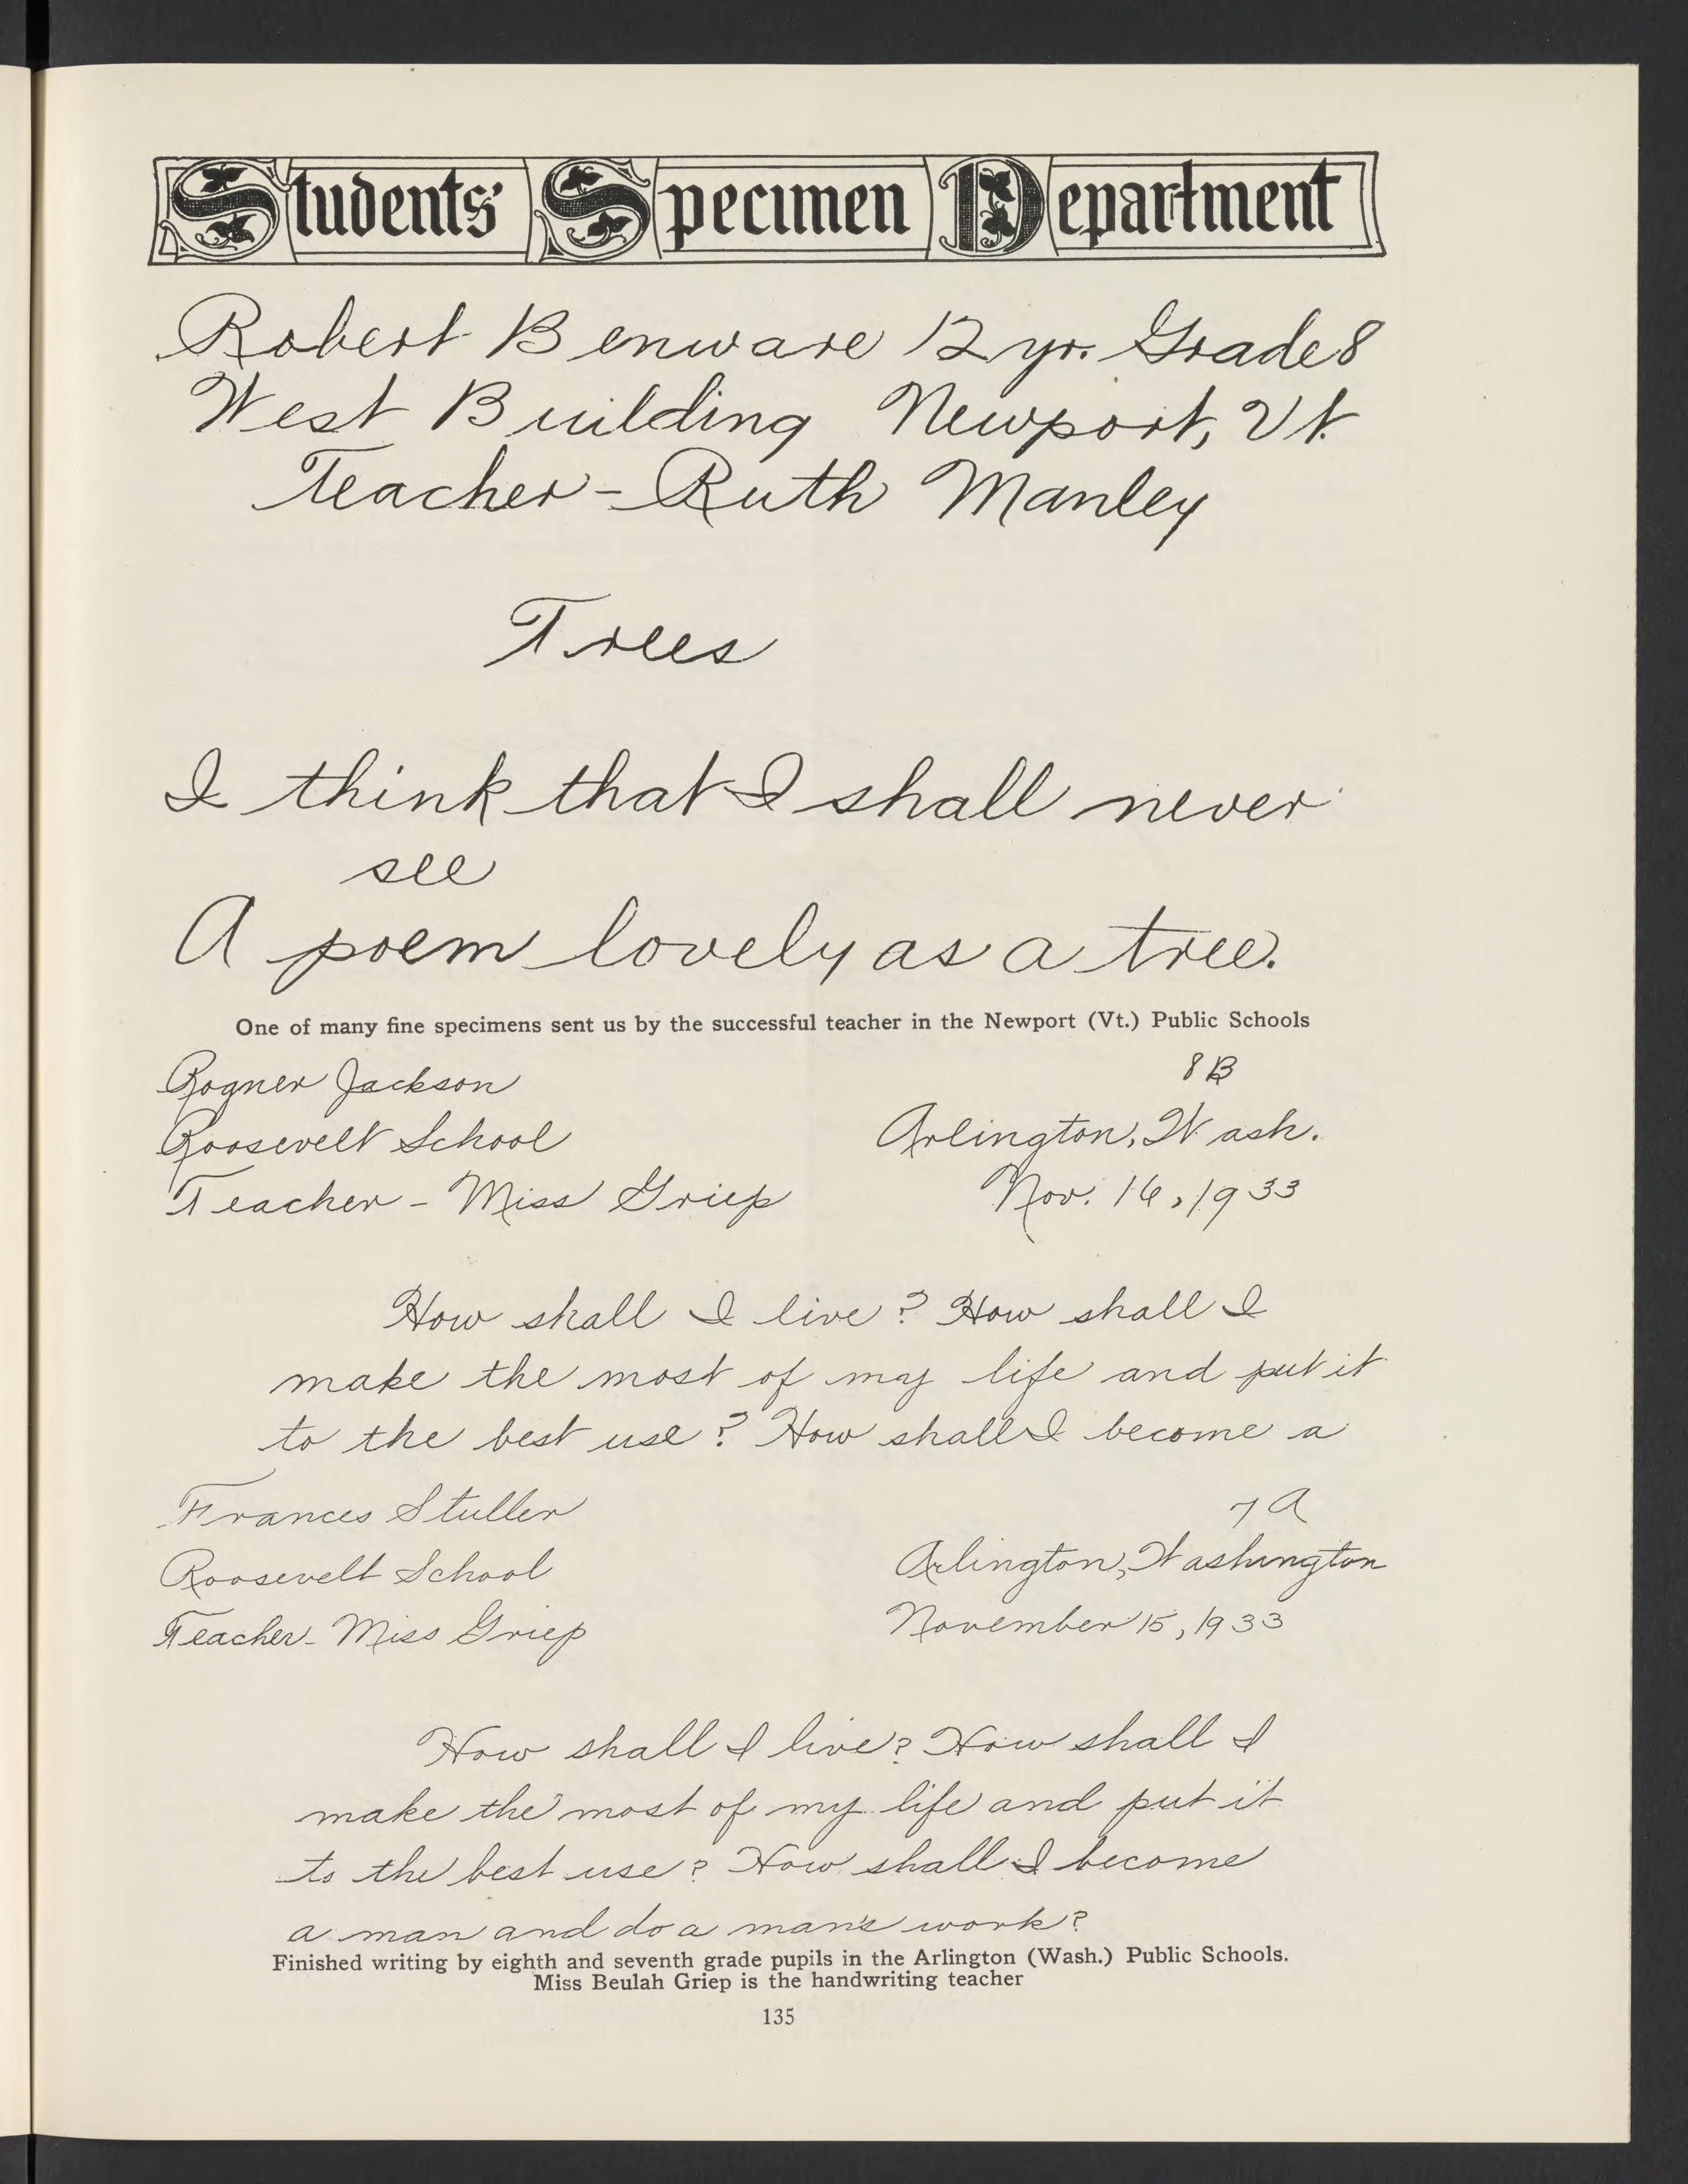 Students' Specimen Department
Robert Benware 12 yr. Grade 8
West Building Newport, Vt.
Teacher - Ruth Manley
Trees
I think that I shall never
see
A poem lovely as a tree.
One of many fine specimens sent us by the successful teacher in the Newport (Vt.) Public Schools
Rogner Jackson 8B
Roosevelt School Arlington, Wash.
Teacher - Miss Griep Nov. 16, 1933
How shall I live? How shall I
make the most of my life and put it
to the best use? How shall I become a
Frances Stuller 7A
Roosevelt School Arlington, Washington
Teacher - Miss Griep November 15, 1933
How shall I live? How shall I
make the most of my life and put it
to the best use? How shall I become
a man and do a man's work?
Finished writing by eighth and seventh grade pupils in the Arlington (Wash.) Public Schools.
Miss Beulah Griep is the handwriting teacher
135